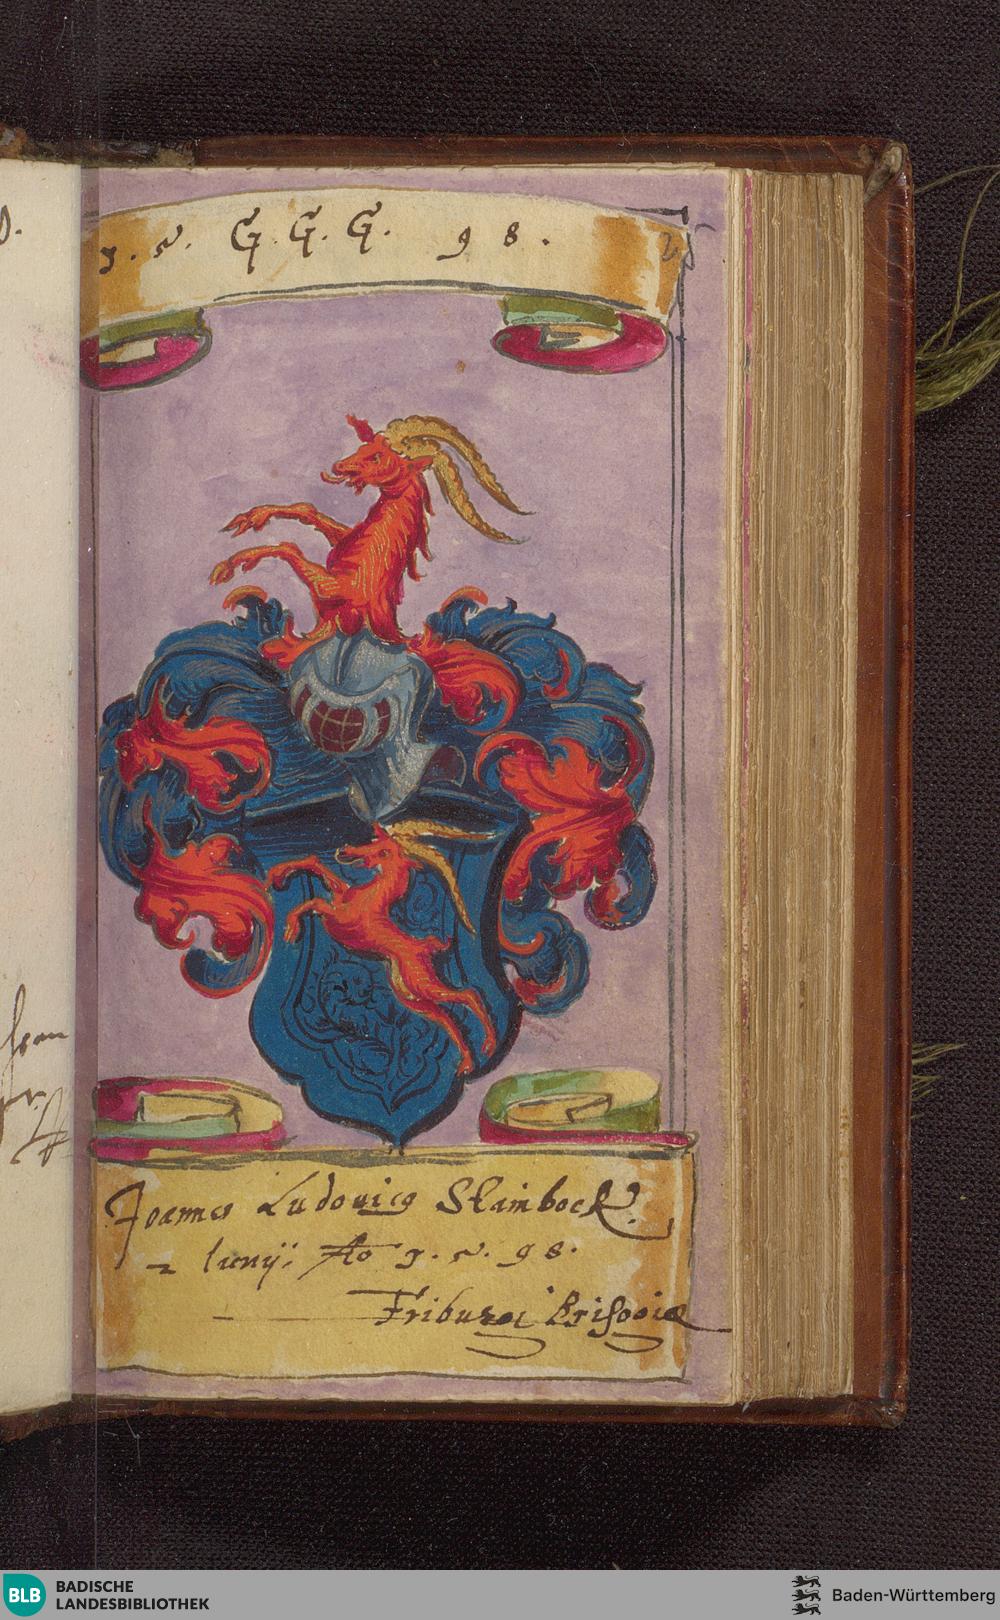 1. 5. G. G. G. 9 8.
Joannes Ludovicus Stainbock
2 Iunij. Ao 1. 5. 98.
Friburgi Brisgoiae
BLB
BADISCHE
LANDESBIBLIOTHEK
Baden-Württemberg